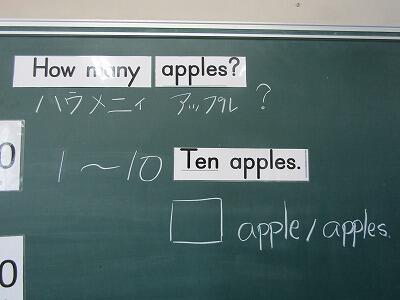 How many apples?
ハウメニィ アップル ?
0
1〜10 Ten apples.
□ apple / apples.
0